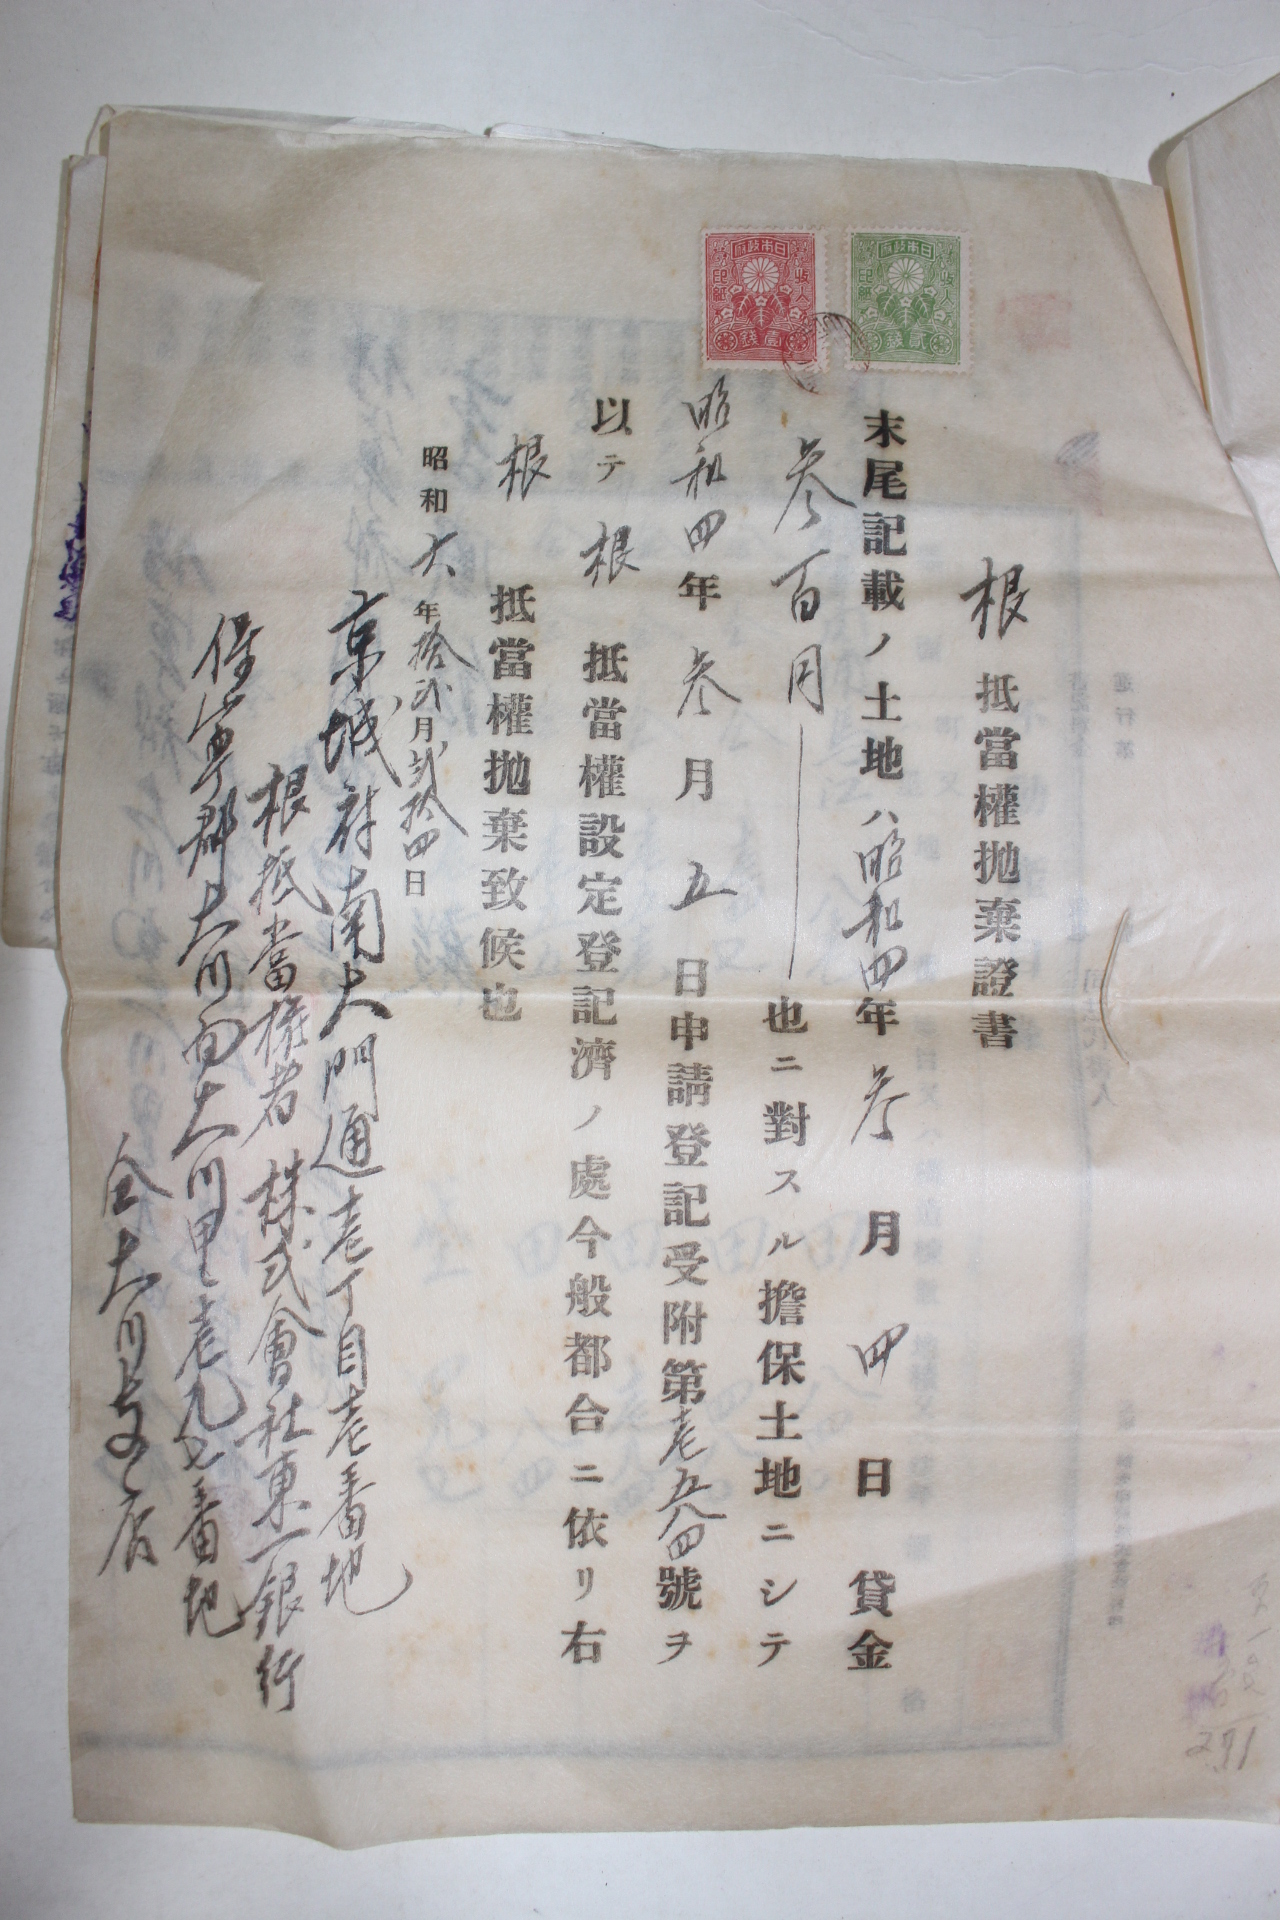 日本政府
收入
印紙
貳錢
日本政府
收入
印紙
壹錢
根抵當權抛棄證書
末尾記載ノ土地ハ昭和四年参月四日貸金
参百円也ニ對スル擔保土地ニシテ
昭和四年参月五日申請登記受附第壱五八四號ヲ
以テ根抵當權設定登記濟ノ處今般都合ニ依リ右
根抵當權抛棄致候也
昭和六年拾弐月弐拾四日
京城府南大門通壱丁目壱番地
根抵当権者株式會社東一銀行
保寧郡大川面大川里壱九七番地
仝大川支店
271